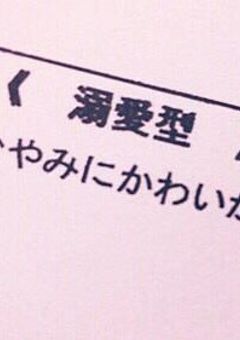 《 溺愛型
やみにかわいが